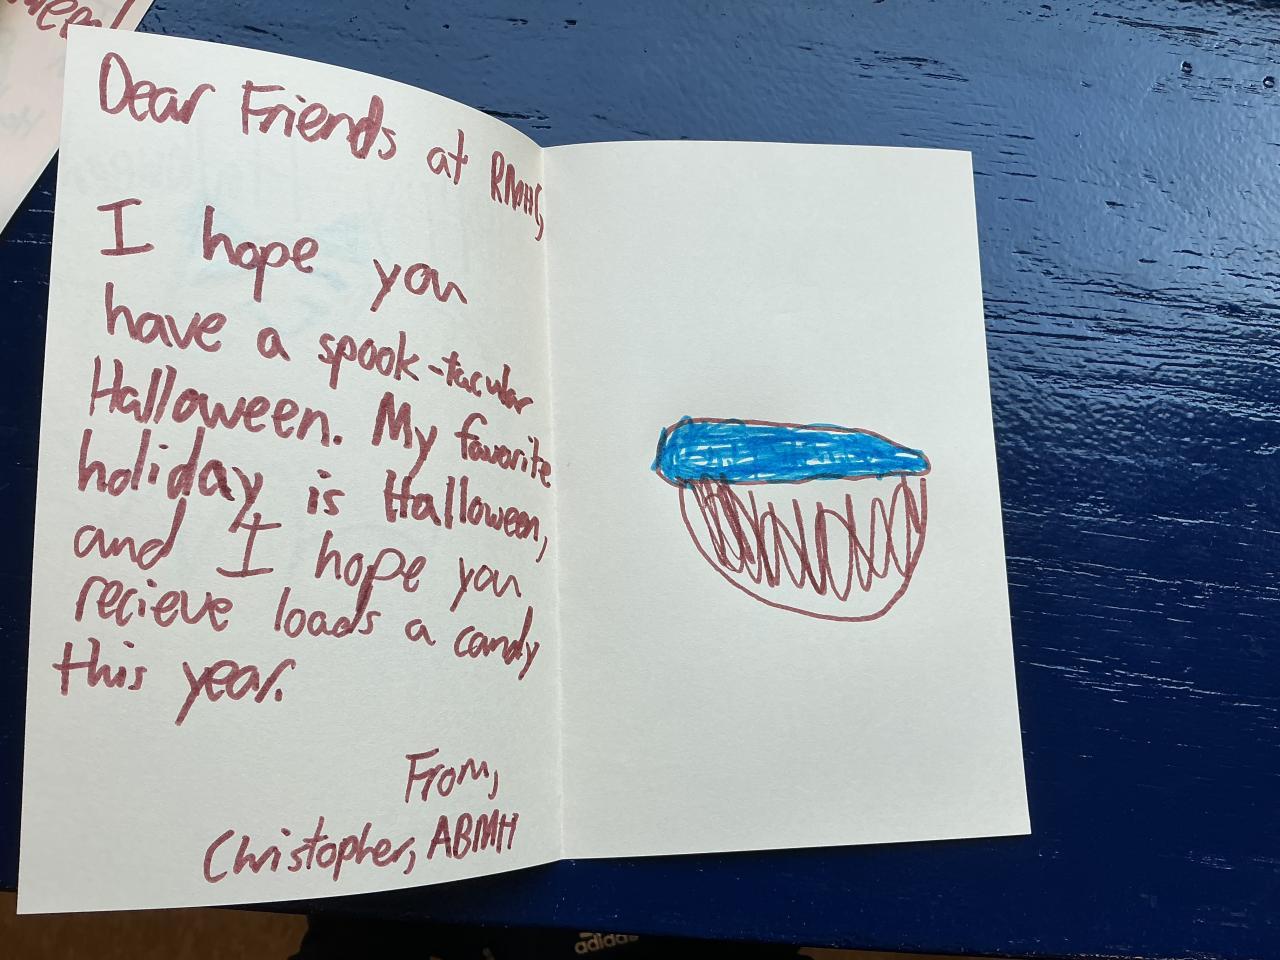 ween!
Dear Friends at RMHC,
I hope you
have a spook-tacular
Halloween. My favorite
holiday is Halloween,
and I hope you
recieve loads a candy
this year.
From,
Christopher, ABMH
adidas